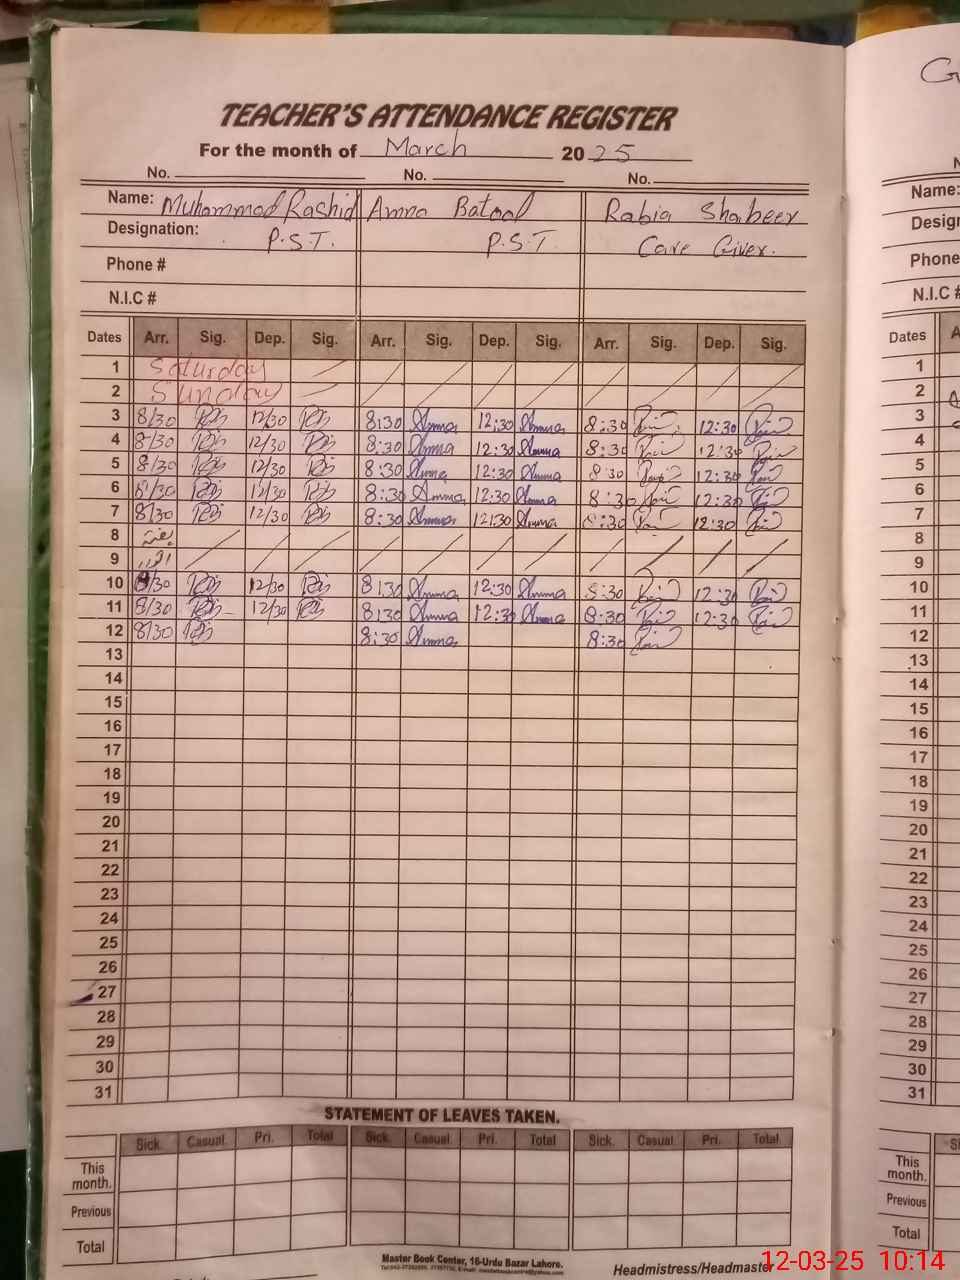 TEACHER'S ATTENDANCE REGISTER
For the month of March 2025
No. No. No.
Name: Muhammad Rashid Amna Batool Rabia Shabeer
Designation: P.S.T. P.S.T Care Giver.
Phone #
N.I.C #
Dates Arr. Sig. Dep. Sig. Arr. Sig. Dep. Sig. Arr. Sig. Dep. Sig.
1 Saturday
2 Sunday
3 8/30 12/30 8:30 Amna 12:30 Amna 8:30 12:30
4 8/30 12/30 8:30 Amna 12:30 Amna 8:30 12:30
5 8/30 12/30 8:30 Amna 12:30 Amna 8:30 12:30
6 8/30 12/30 8:30 Amna 12:30 Amna 8:30 12:30
7 8/30 12/30 8:30 Amna 12:30 Amna 8:30 12:30
8 ہفتہ
9 اتوار
10 8/30 12/30 8:30 Amna 12:30 Amna 8:30 12:30
11 8/30 12/30 8:30 Amna 12:30 Amna 8:30 12:30
12 8/30 8:30 Amna 8:30
13
14
15
16
17
18
19
20
21
22
23
24
25
26
27
28
29
30
31
STATEMENT OF LEAVES TAKEN.
Sick. Casual Pri. Total Sick. Casual Pri. Total Sick. Casual Pri. Total
This month.
Previous
Total
Master Book Center, 16-Urdu Bazar Lahore.
Headmistress/Headmaster
Name:
Phone
N.I.C #
Dates
1
2
3
4
5
6
7
8
9
10
11
12
13
14
15
16
17
18
19
20
21
22
23
24
25
26
27
28
29
30
31
This month.
Previous
Total
12-03-25 10:14